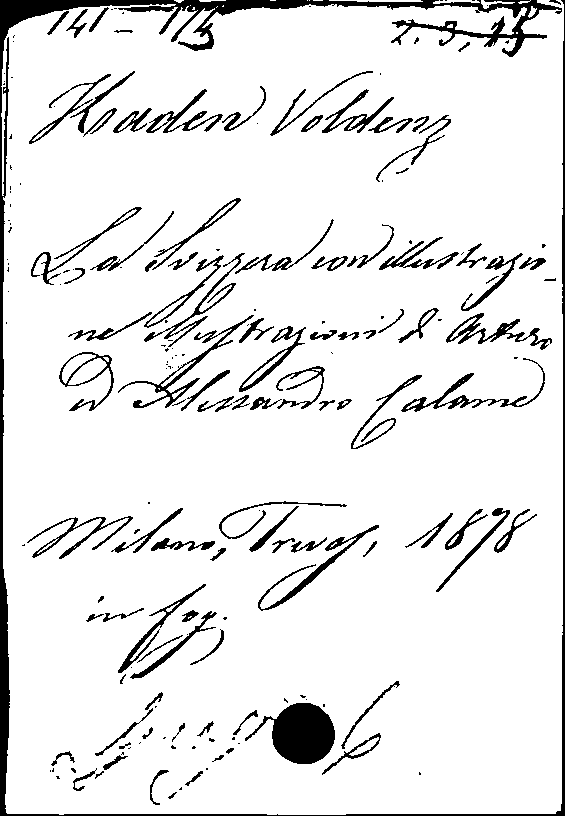 141 - 175 2. 3, 15
Kaden Voldenz
La Svizzera con illustrazio-
ne illustrazioni di Arturo
ed Alessandro Calame
Milano, Treves, 1878
in fog.
6